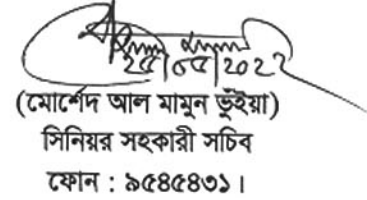 ২৫/০৫/2022
(মোর্শেদ আল মামুন ভুঁইয়া)
সিনিয়র সহকারী সচিব
ফোন : ৯৫৪৫৪৩১।